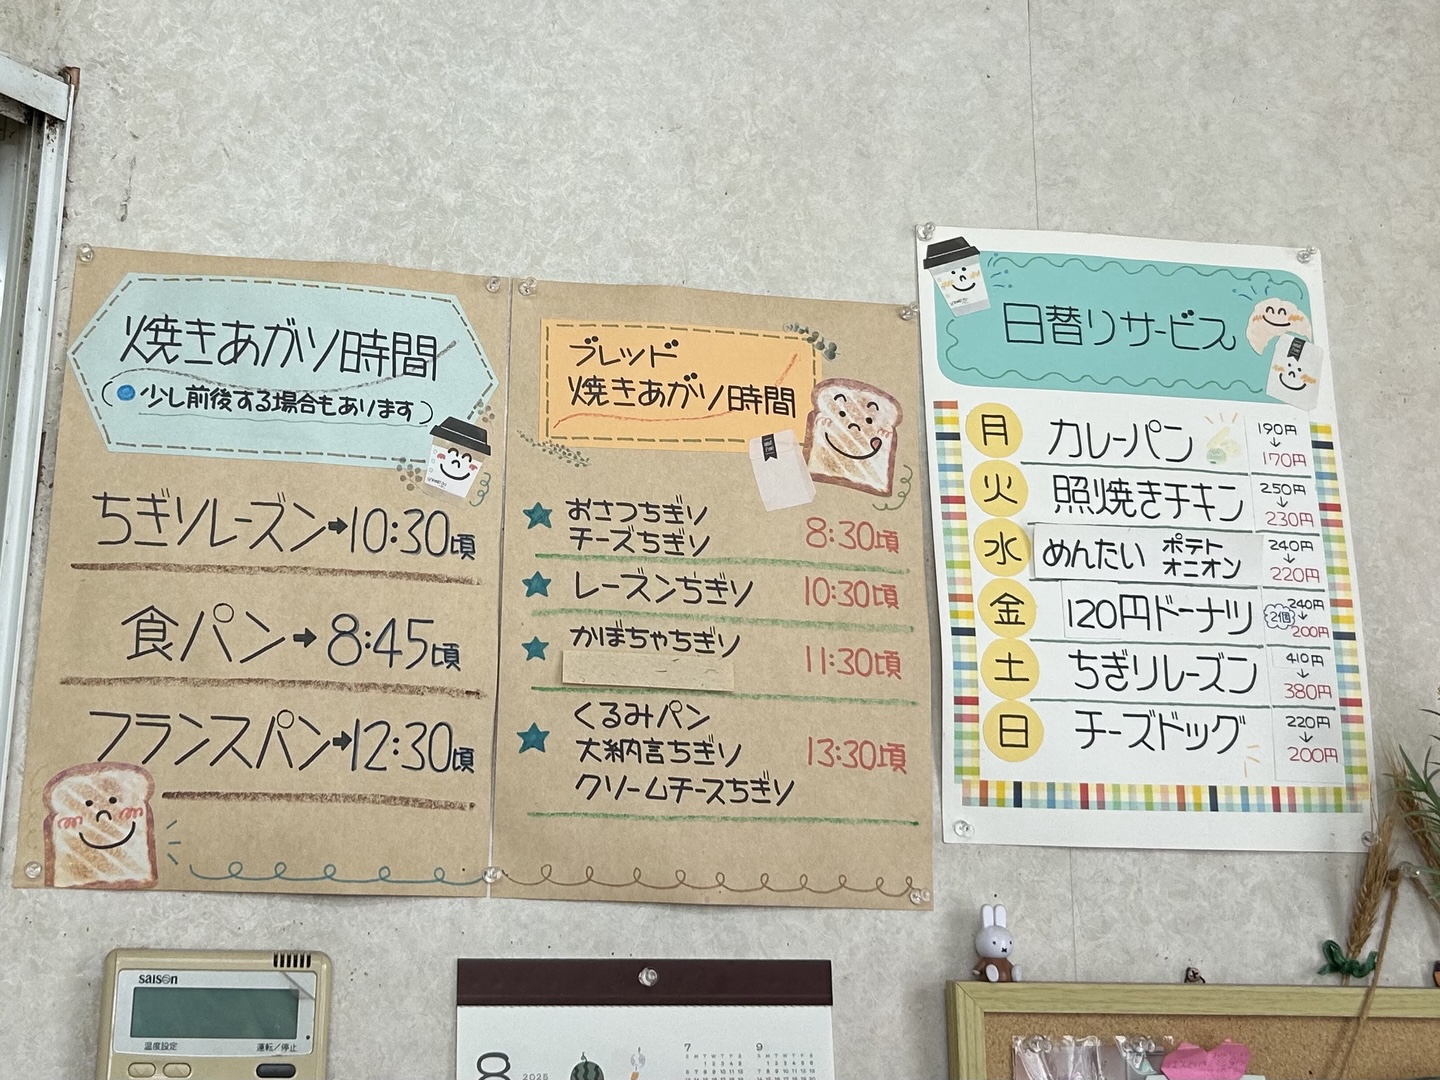 焼きあがり時間
(●少し前後する場合もあります)
ちぎりレーズン➡10:30頃
食パン➡8:45頃
フランスパン➡12:30頃
ブレッド
焼きあがり時間
★おさつちぎり
チーズちぎり 8:30頃
★レーズンちぎり 10:30頃
★かぼちゃちぎり 11:30頃
くるみパン
★大納言ちぎり 13:30頃
クリームチーズちぎり
日替りサービス
月 カレーパン 190円↓170円
火 照焼きチキン 250円↓230円
水 めんたい ポテトオニオン 240円↓220円
金 120円ドーナツ 2個 240円↓200円
土 ちぎりレーズン 410円↓380円
日 チーズドッグ 220円↓200円
saison
温度設定 運転/停止
8 2025 7 9